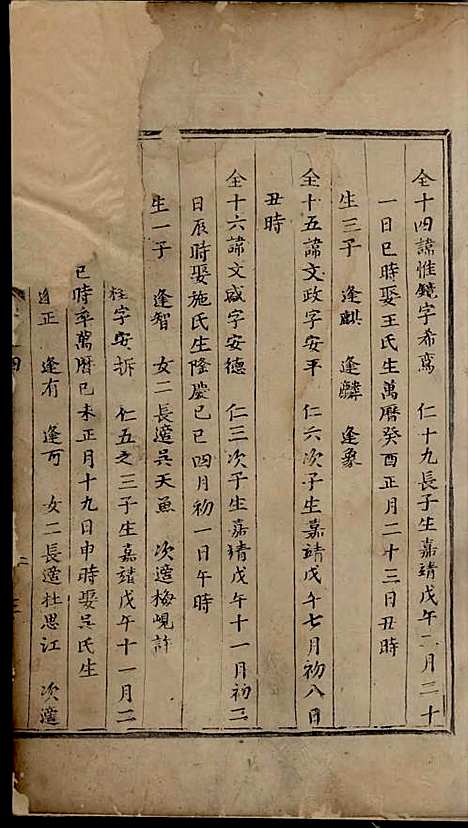 仝十四諱惟鏡字希鸞 仁十九長子生嘉靖戊午二月二十
一日巳時娶王氏生萬曆癸酉正月二十三日丑時
生三子 逢麒 逢麟 逢象
仝十五諱文政字安平 仁六次子生嘉靖戊午七月初八日
丑時
仝十六諱文盛字安德 仁三次子生嘉靖戊午十一月初二
日辰時娶施氏生隆慶己巳四月初一日午時
生一子 逢智 女二長適吳天魚 次適梅峴許
字安拆 仁五之三子生嘉靖戊午十一月二
巳時卒萬曆己未正月十九日申時娶吳氏生
逢正 逢有 逢可 女二長適杜思江 次適